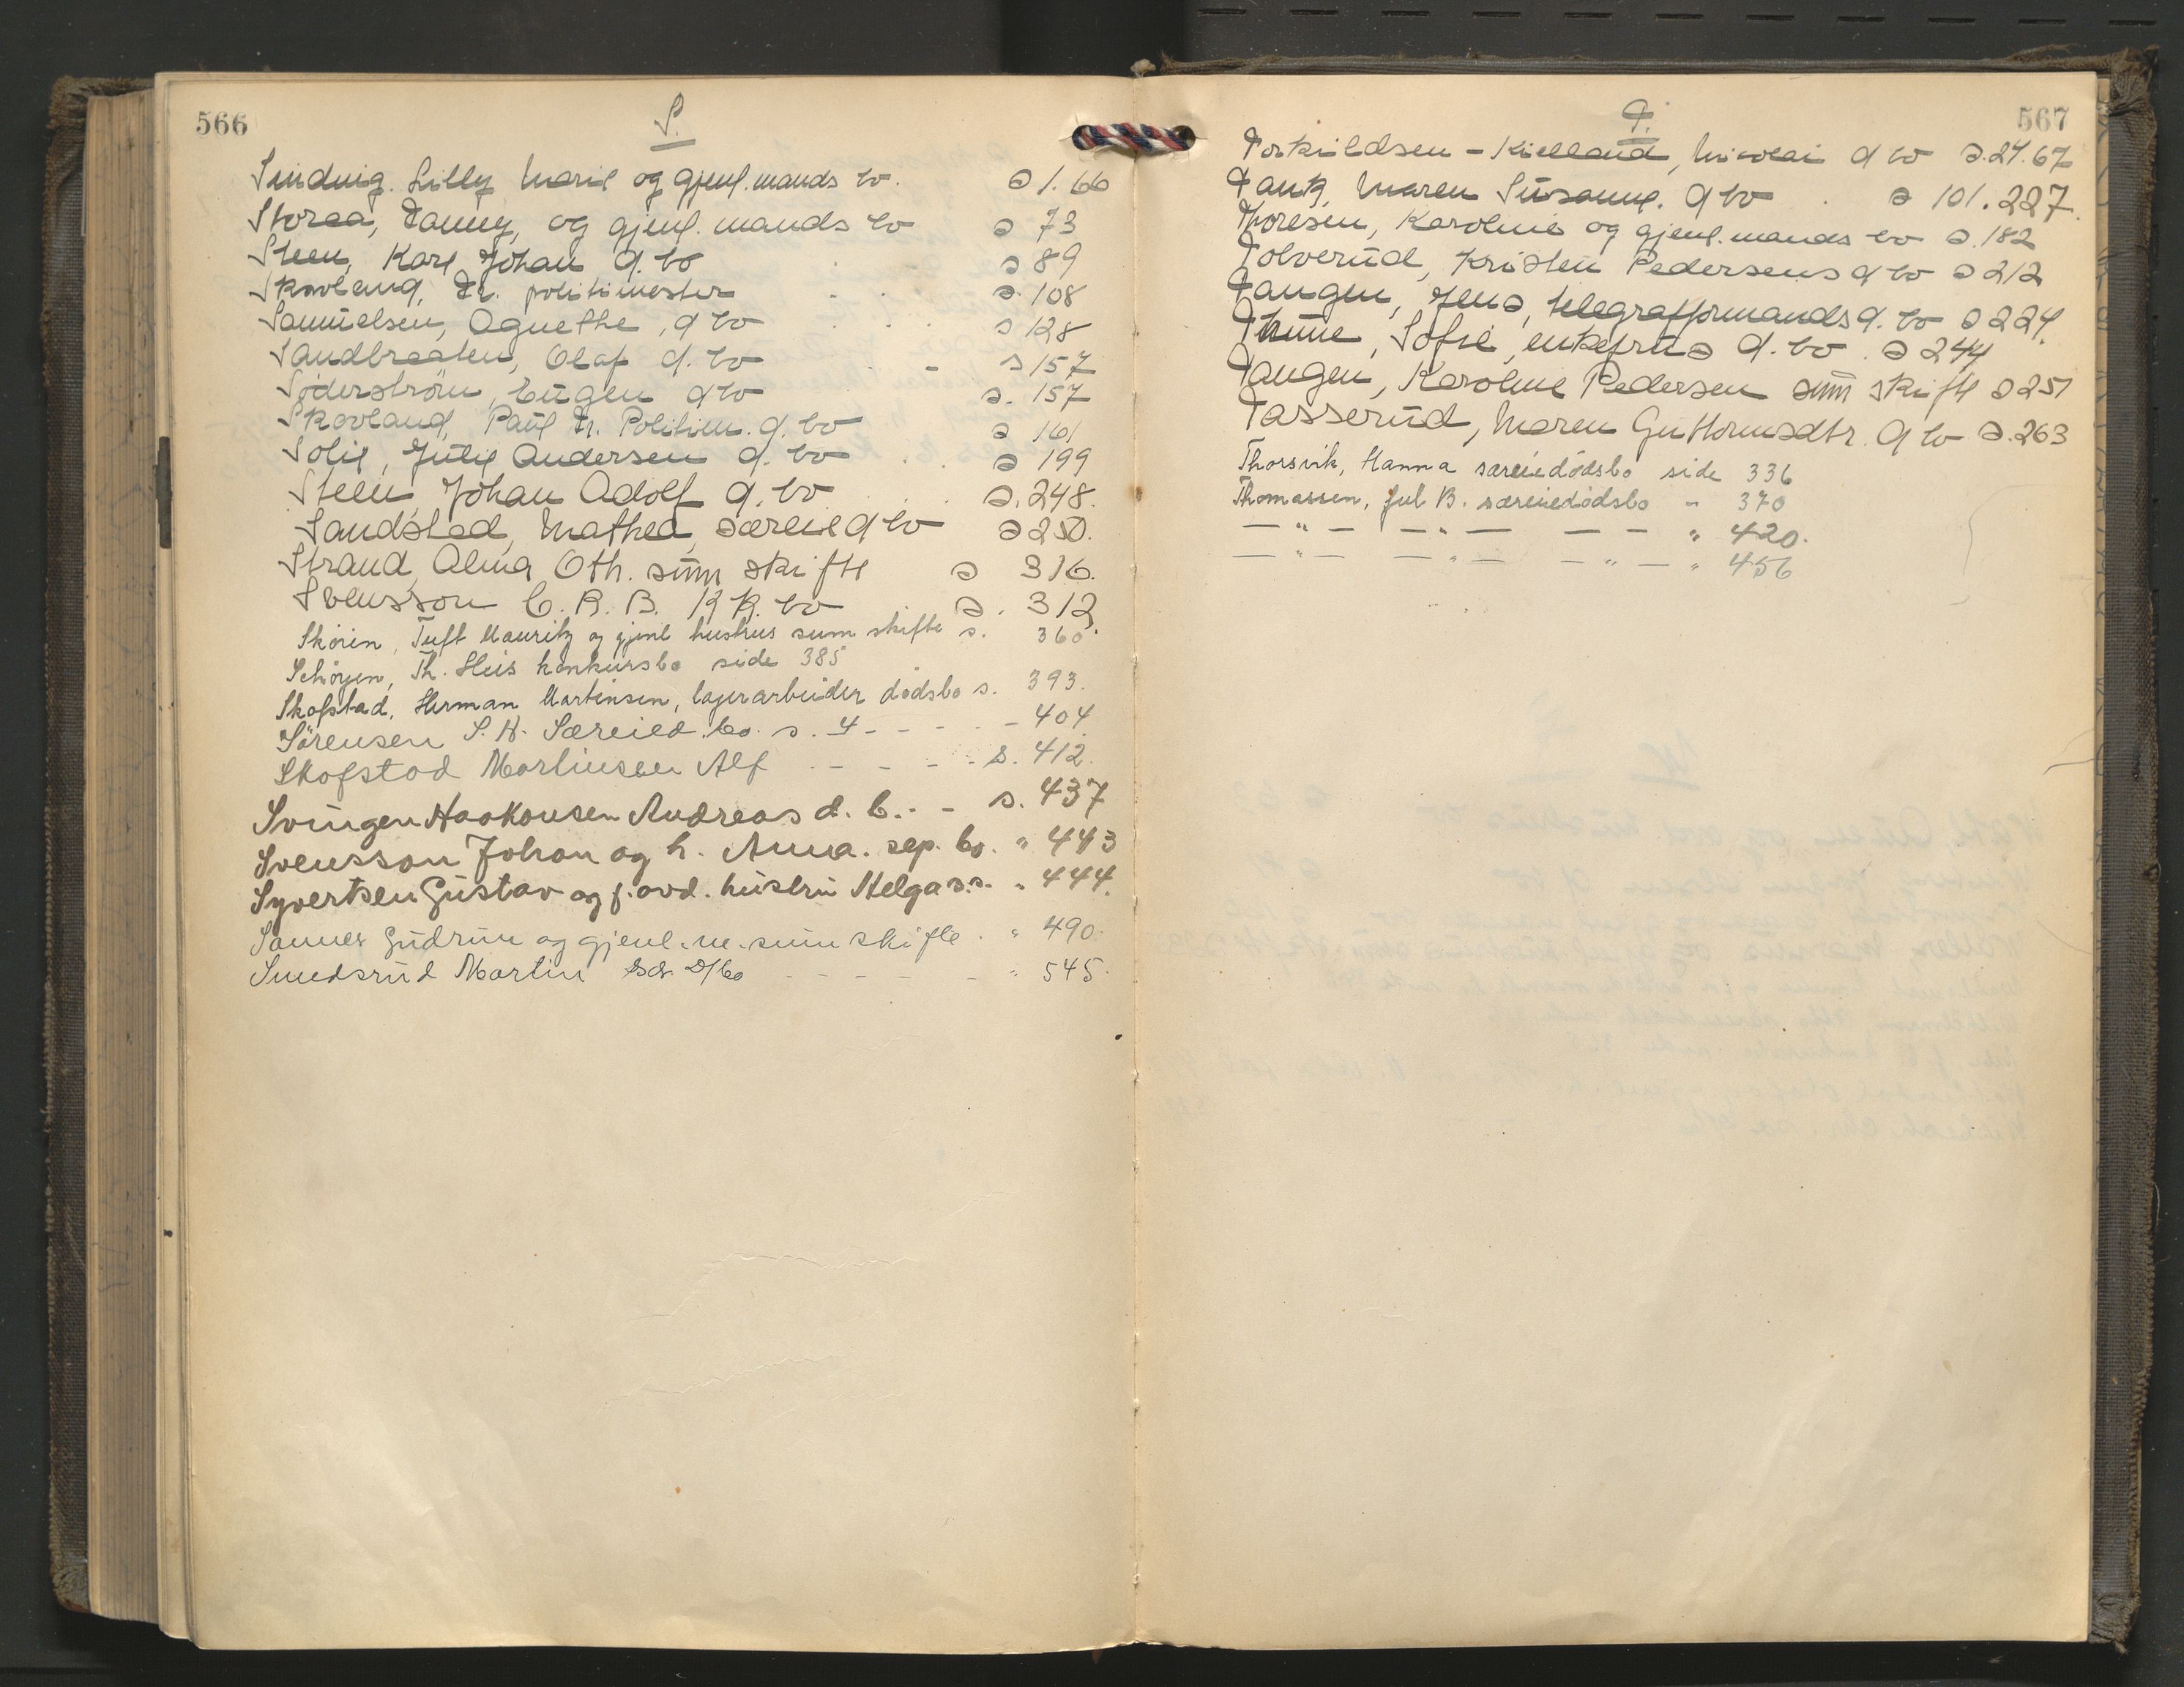 566
S.
Sinding. Lilly Marie og gjenl. mands bo. s 1. 66
Storaa, Fanny, og gjenl. mands bo s 73
Steen, Karl Johan d. bo s 89
Skovland, Fr. politimester s. 108
Samuelsen, Agnethe, d bo s 128
Sandbraaten, Olaf d. bo s 157
Söderström, Eugen d bo s. 157
Skovland, Paul Fr. Politim. d. bo s 161
Solie, Julie Andersen d. bo s 199
Steen, Johan Adolf d. bo s. 248.
Sandstad, Mathea, særeie d bo s 250.
Strand, Alma Oth. sum skifte s 316.
Svensson C. R. B. K K. bo s. 312.
Skoien, Tuft Mauritz og gjenl hustrus sum skifte s. 360.
Schoyen, Th. Heis konkursbo side 385
Skofstad, Herman Martinsen, lagerarbeider dødsbo s. 393.
Sørensen S. H. Særeied. bo. s. 4 - - - - 404
Skofstad Martinsen Alf - - - - s. 412.
Svingen Haakonsen Andreas d. b. - - s. 437
Svensson Johan og h. Anna. sep. bo. " 443
Syvertsen Gustav og f. avd. hustru Helga s.s. " 444.
Sannes Gudrun og gjenl. m. sum skifte. " 490.
Smedsrud Martin Sær D/bo - - - - - " 545.
567
T.
Torkildsen - Kielland, Nicolai d bo s. 24. 67
Tank, Maren Susanne. d bo s 101. 227.
Thoresen, Karoline og gjenl. mands bo s. 182
Tolverud, Kristen Pedersens d bo s 212
Tangen, Jens, telegrafformands d. bo s 224.
Thune, Sofie, enkefrus d. bo. s 244
Tangen, Karoline Pedersen sum skifte s 251
Tasserud, Maren Guttormsdtr. d bo s. 263
Thorsvik, Hanna særeiedødsbo side 336
Thomassen, Jul B. særeiedødsbo " 370
— " — — " — — — " 420.
— " — — " — — " — " 456